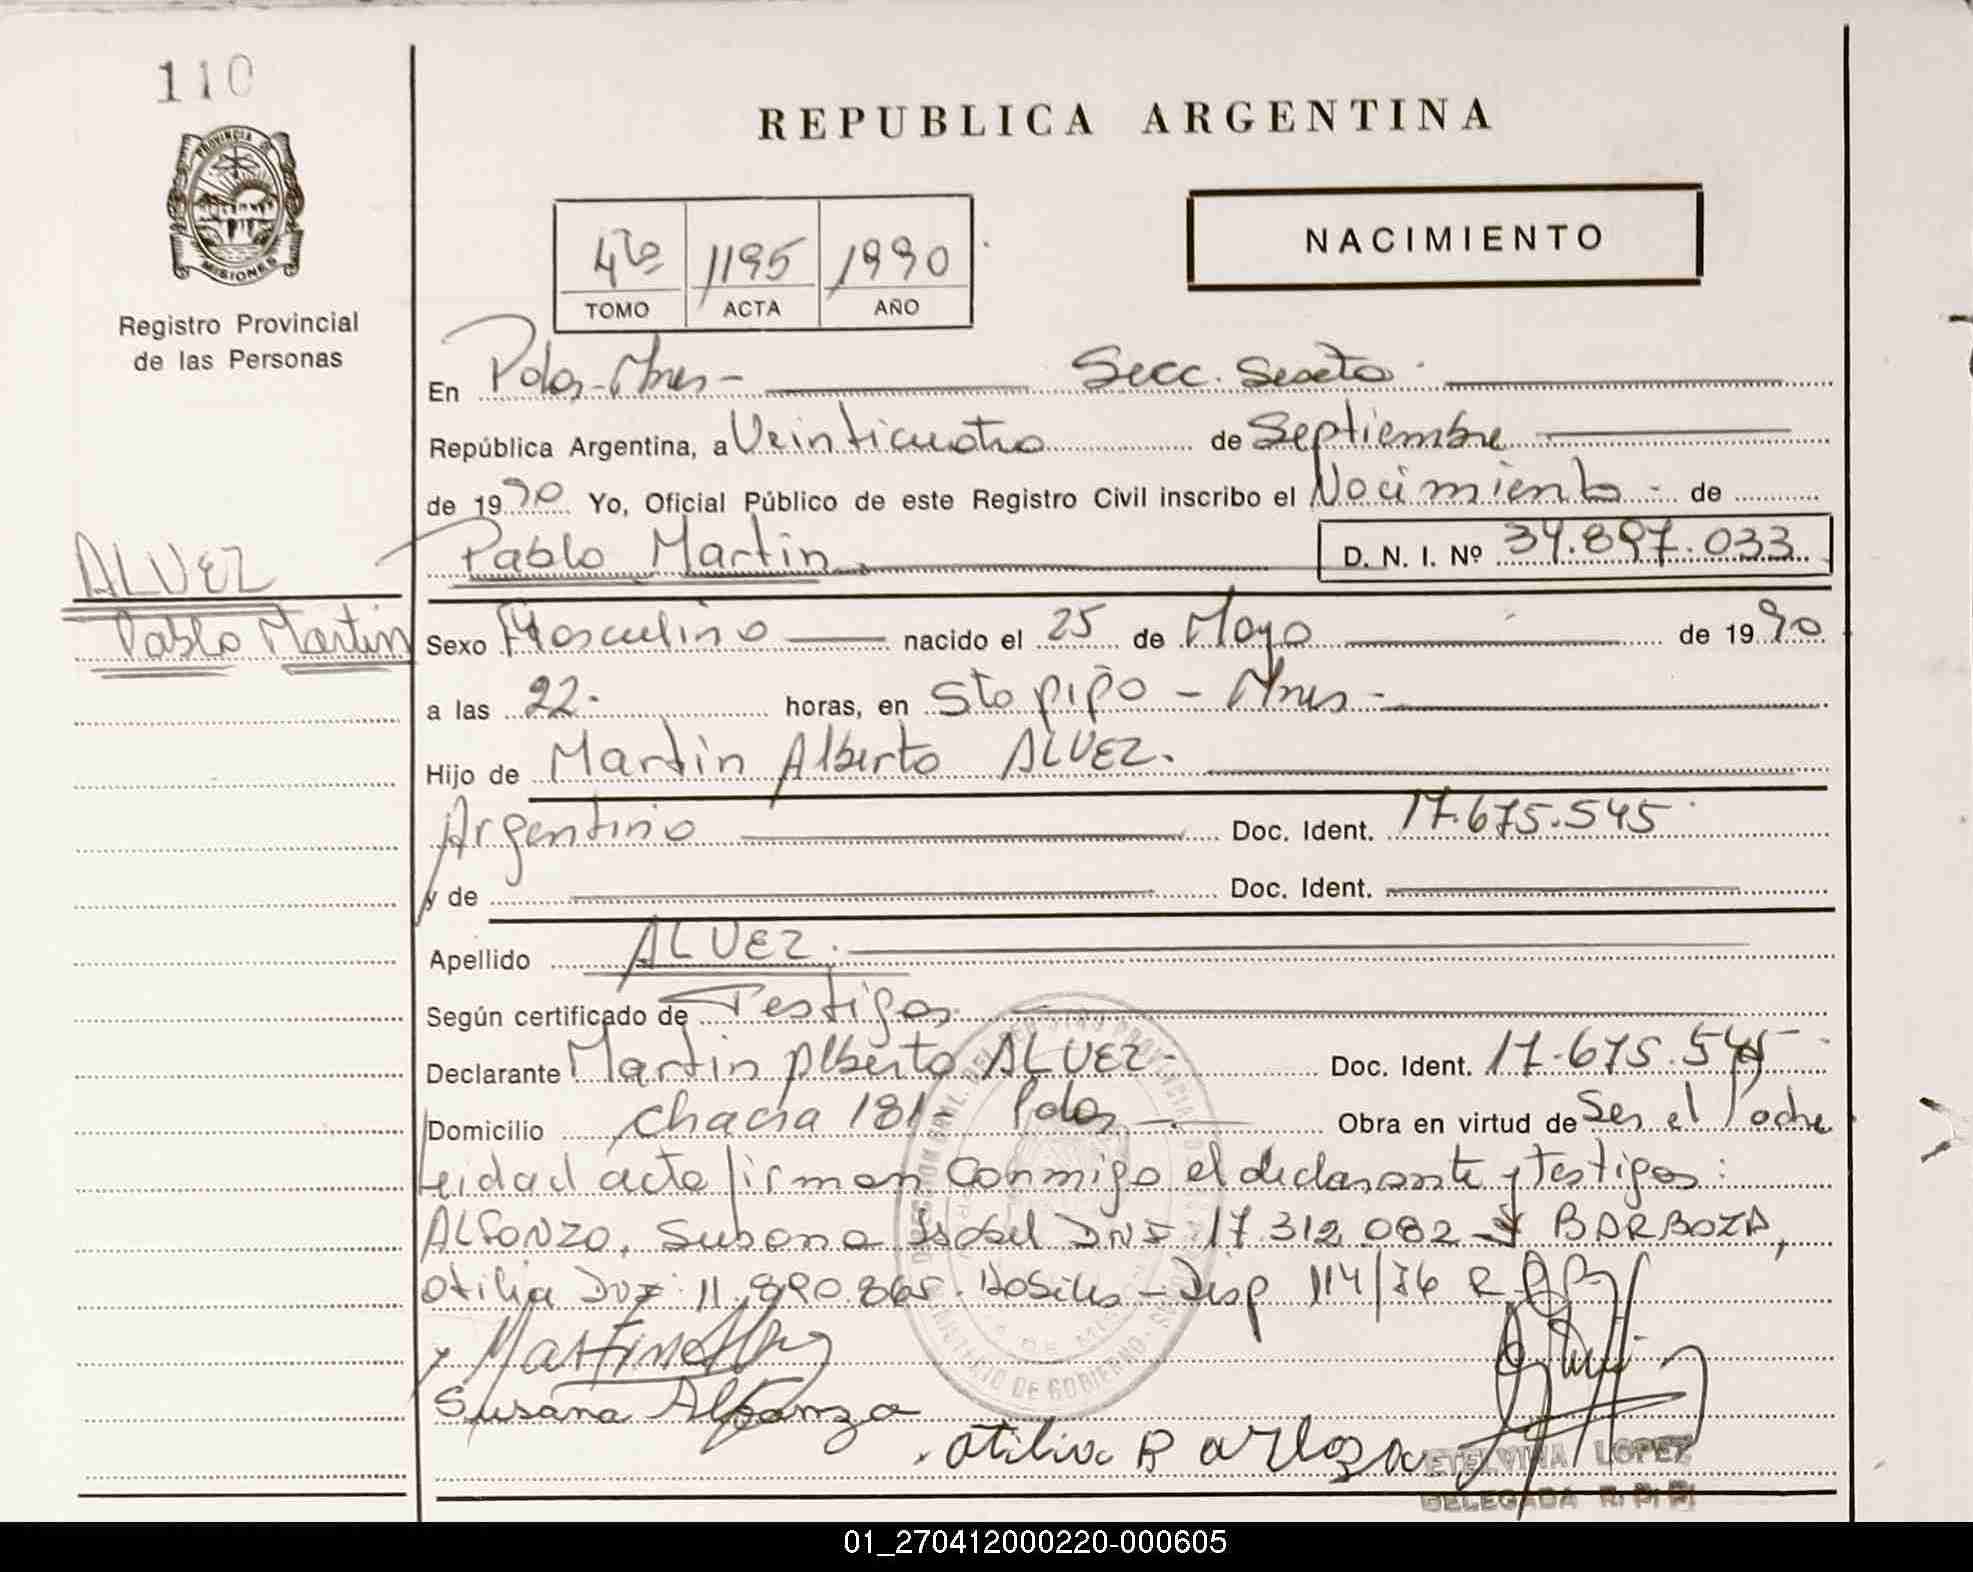 110
REPUBLICA ARGENTINA
PROVINCIA DE
MISIONES
Registro Provincial
de las Personas
4to 1195 1990
TOMO ACTA AÑO
NACIMIENTO
En Pdas - Mnes - Secc. Sexta.
República Argentina, a Veinticuatro de Septiembre
de 1990 Yo, Oficial Público de este Registro Civil inscribo el Nacimiento - de
Pablo Martin D. N. I. Nº 34.897.033
ALVEZ
Pablo Martin
Sexo Masculino nacido el 25 de Mayo de 1990
a las 22. horas, en Sto pipo - Mnes -
Hijo de Martin Alberto ALVEZ.
Argentino Doc. Ident. 17.675.545
y de Doc. Ident.
Apellido ALVEZ.
Según certificado de Testigos
Declarante Martin Alberto ALVEZ - Doc. Ident. 17.675.545
Domicilio chacra 181 - Pdas Obra en virtud de Ser el Padre
Leida el acta firman conmigo el declarante y testigos:
ALFONZO, Susana Isabel DNI 17.312.082 - y BARBOZA,
Otilia DNI: 11.890.865. Disp 114/76 R
Susana Alfonzo
Otilia Barboza
ETELVINA LOPEZ
DELEGADA R. P. P.
01_270412000220-000605